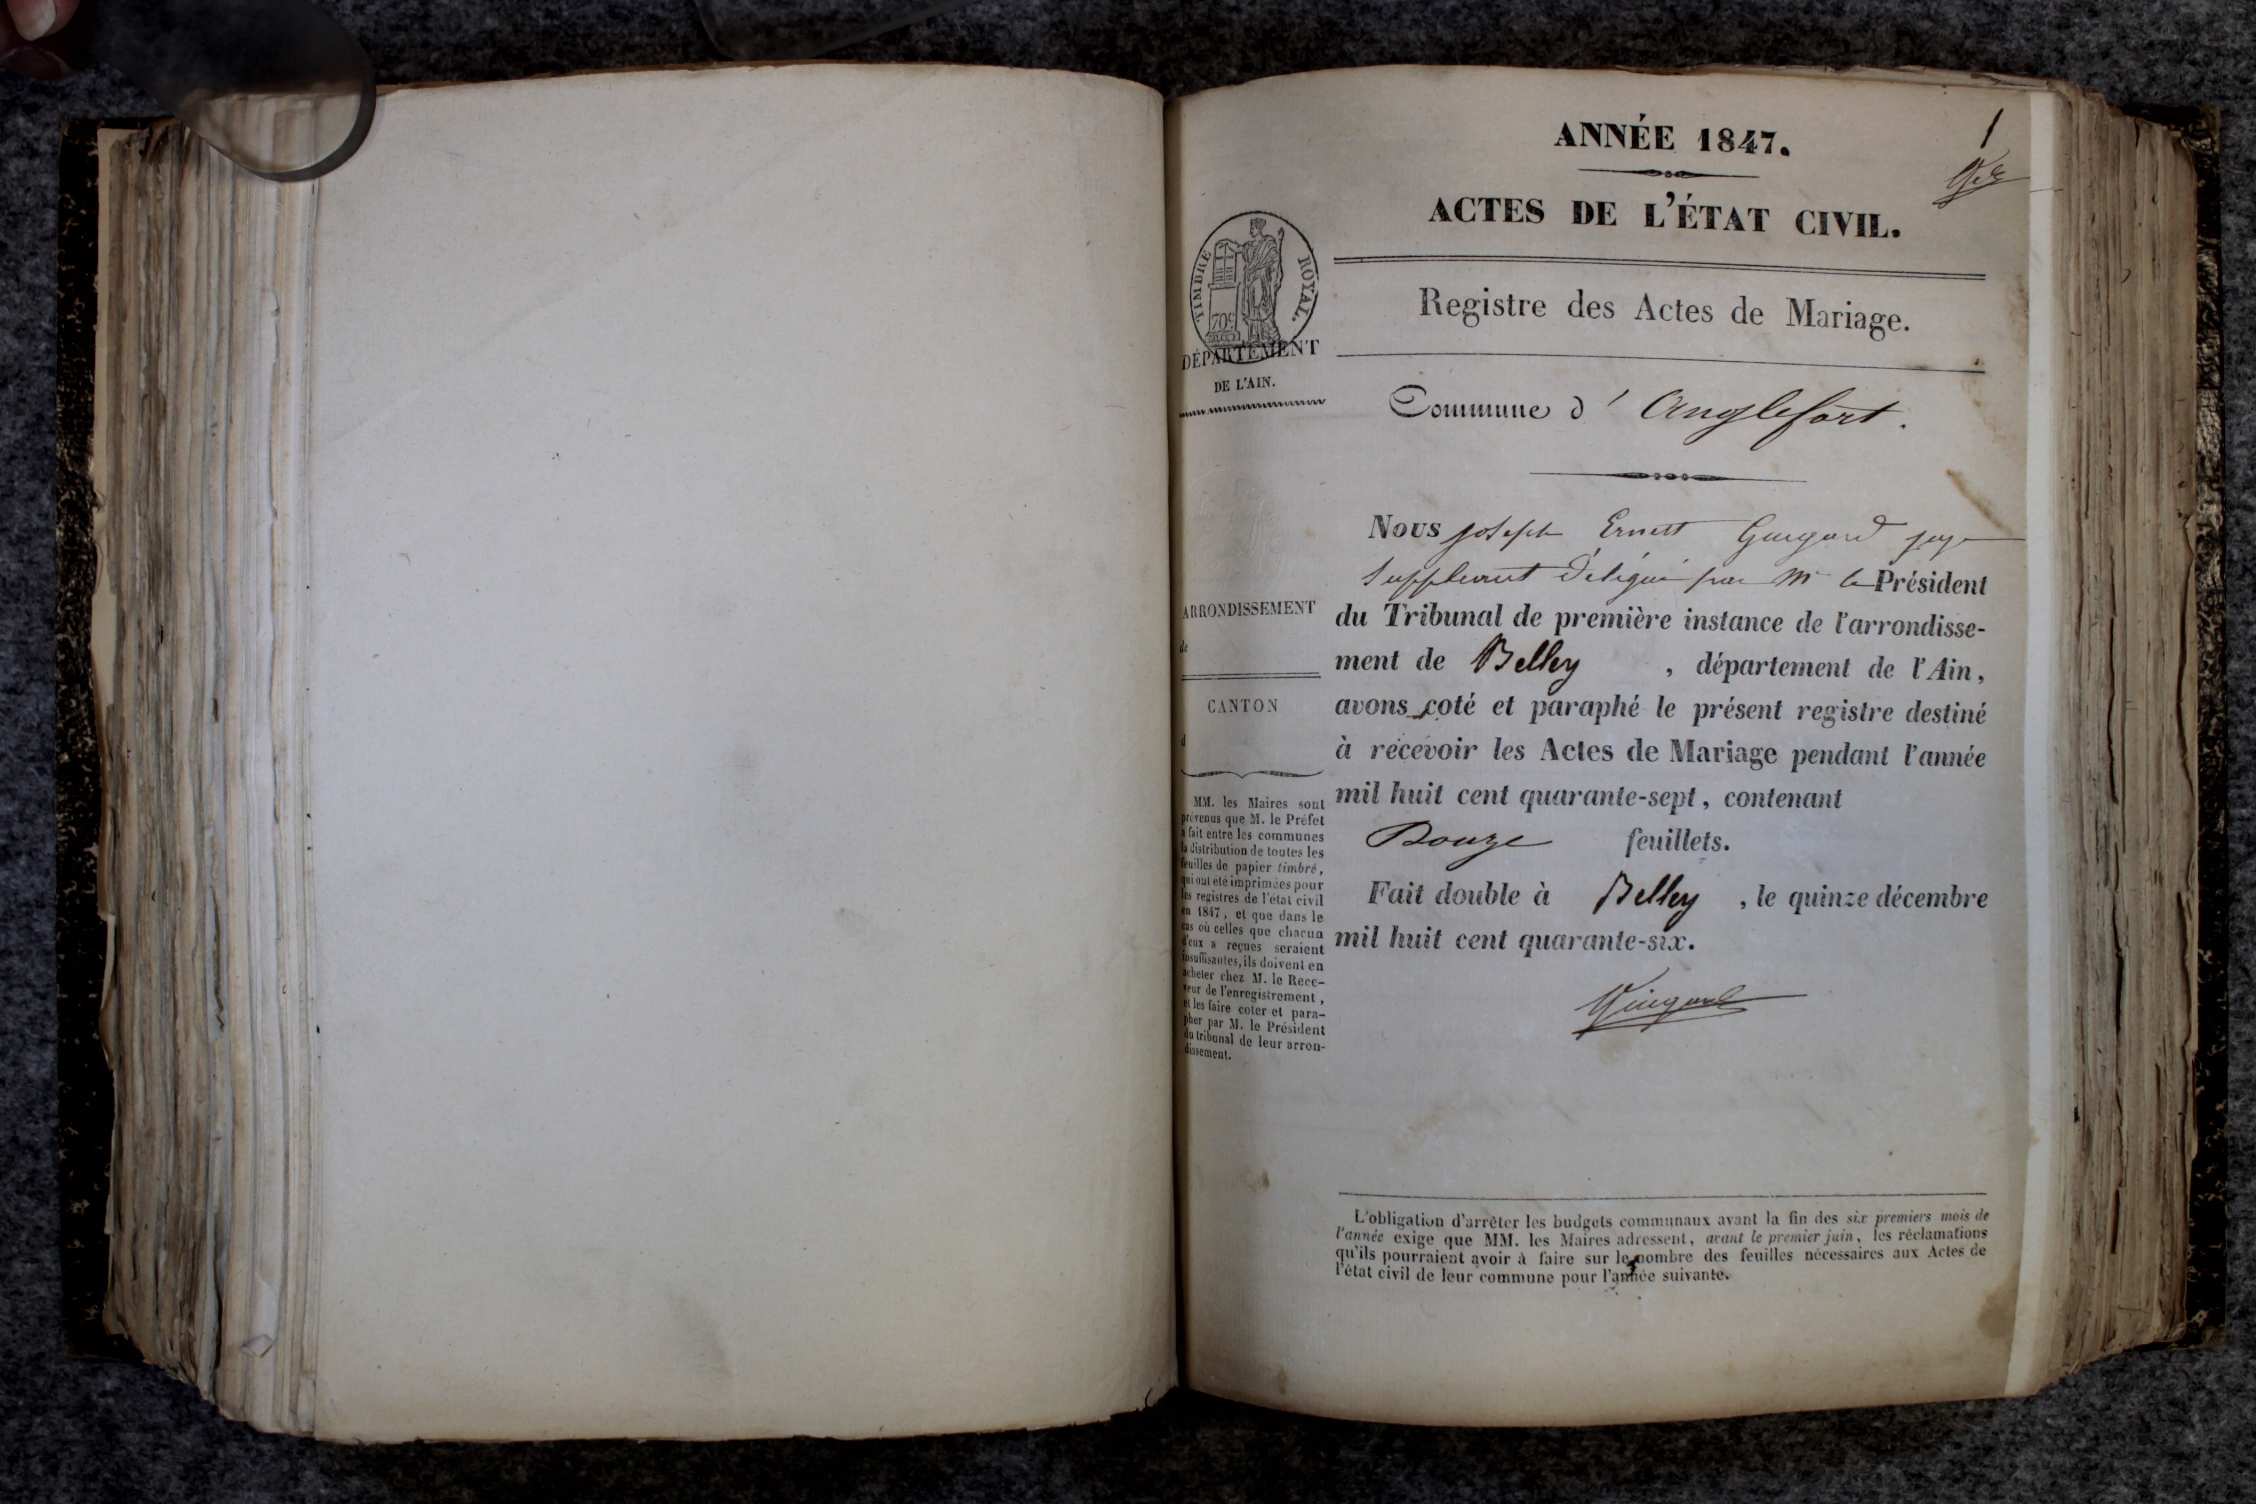 ANNÉE 1847.
1
ACTES DE L'ÉTAT CIVIL.
Registre des Actes de Mariage.
TIMBRE ROYAL.
70c
DÉPARTEMENT
DE L'AIN.
Commune d' Anglefort.
Nous joseph Ernest Guigard juge
Suppléant Délégué par Mr le Président
du Tribunal de première instance de l'arrondisse-
ment de Belley , département de l'Ain,
avons coté et paraphé le présent registre destiné
à recevoir les Actes de Mariage pendant l'année
mil huit cent quarante-sept, contenant
Douze feuillets.
Fait double à Belley , le quinze décembre
mil huit cent quarante-six.
Guigard
ARRONDISSEMENT
de
CANTON
d
MM. les Maires sont
prévenus que M. le Préfet
a fait entre les communes
la distribution de toutes les
feuilles de papier timbré,
qui ont été imprimées pour
les registres de l'état civil
en 1847, et que dans le
cas où celles que chacun
d'eux a reçues seraient
insuffisantes, ils doivent en
acheter chez M. le Rece-
veur de l'enregistrement,
et les faire coter et para-
pher par M. le Président
du tribunal de leur arron-
dissement.
L'obligation d'arrêter les budgets communaux avant la fin des six premiers mois de
l'année exige que MM. les Maires adressent, avant le premier juin, les réclamations
qu'ils pourraient avoir à faire sur le nombre des feuilles nécessaires aux Actes de
l'état civil de leur commune pour l'année suivante.